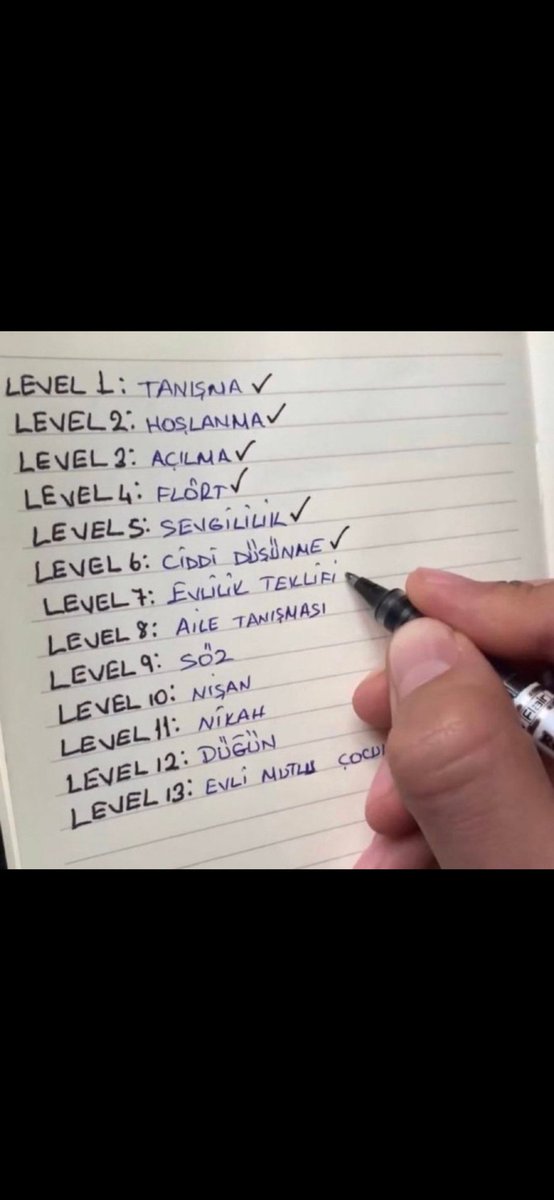 LEVEL 1: TANIŞMA ✓
LEVEL 2: HOŞLANMA ✓
LEVEL 3: AÇILMA ✓
LEVEL 4: FLÖRT ✓
LEVEL 5: SEVGİLİLİK ✓
LEVEL 6: CİDDİ DÜŞÜNME ✓
LEVEL 7: EVLİLİK TEKLİFİ
LEVEL 8: AİLE TANIŞMASI
LEVEL 9: SÖZ
LEVEL 10: NİŞAN
LEVEL 11: NİKAH
LEVEL 12: DÜĞÜN
LEVEL 13: EVLİ MUTLU